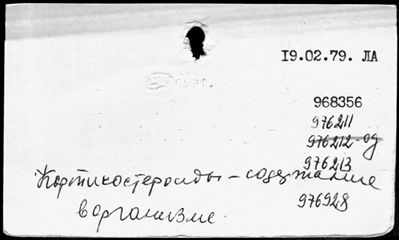 19.02.79. ЛА
968356
976211
976212-од
976213
Кортикостероиды – содержание
976928
в организме.